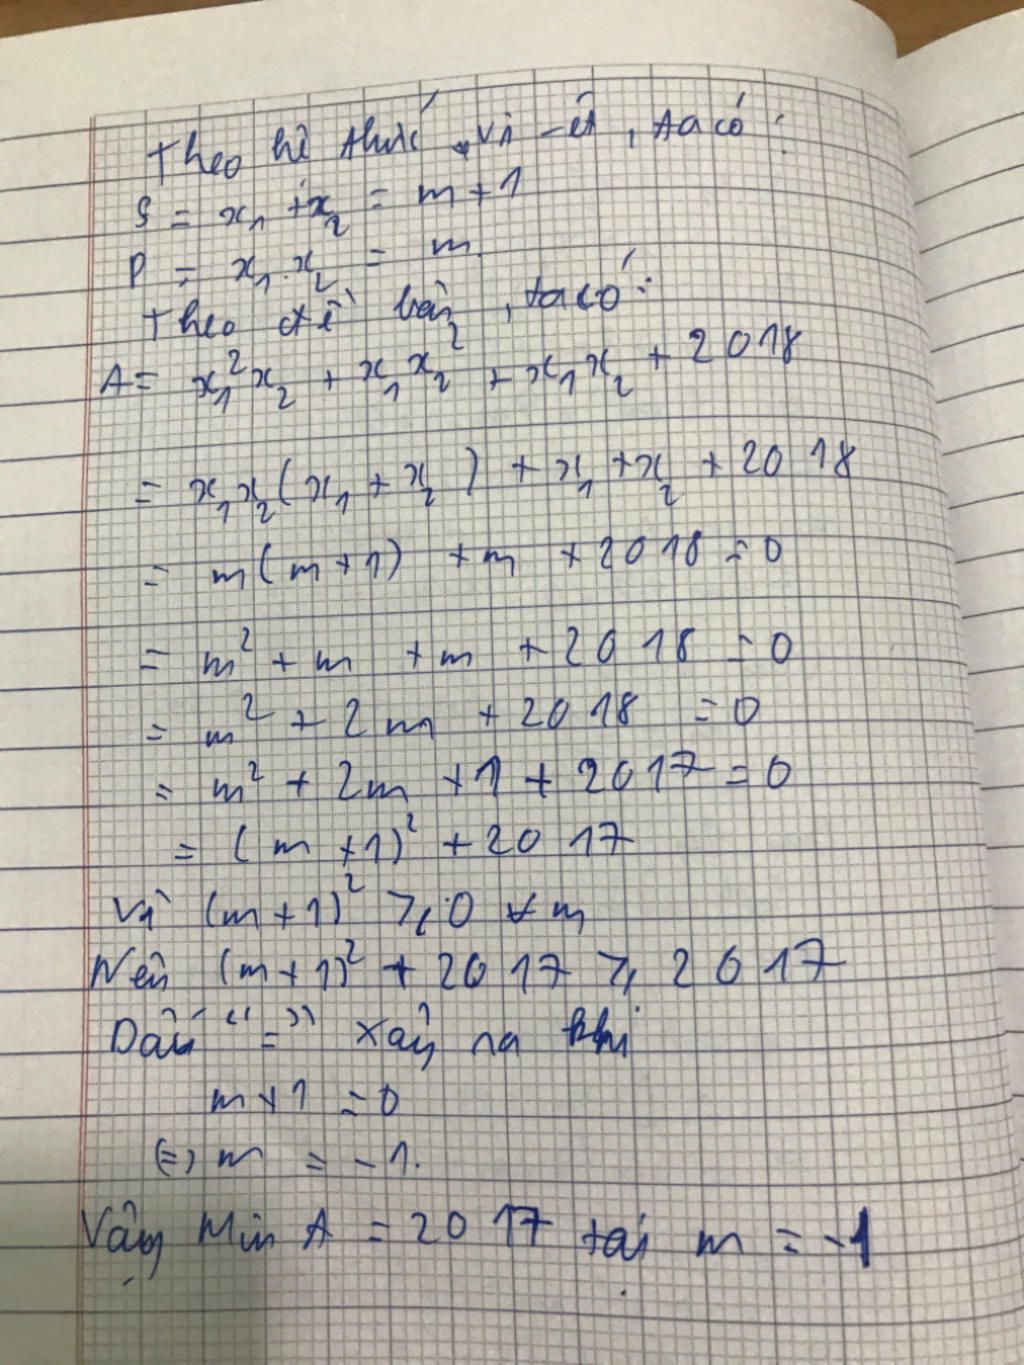 Theo hệ thức Vi-ét, ta có:
S = x₁ + x₂ = m + 1
P = x₁.x₂ = m
Theo đề bài, ta có:
A = x₁²x₂ + x₁x₂² + x₁x₂ + 2018
= x₁x₂(x₁ + x₂) + x₁ + x₂ + 2018
= m(m+1) + m + 2018 = 0
= m² + m + m + 2018 = 0
= m² + 2m + 2018 = 0
= m² + 2m + 1 + 2017 = 0
= (m+1)² + 2017
Vì (m+1)² ≥ 0 ∀m
Nên (m+1)² + 2017 ≥ 2017
Dấu "=" xảy ra khi
m+1 = 0
(=) m = -1.
Vậy Min A = 2017 tại m = -1